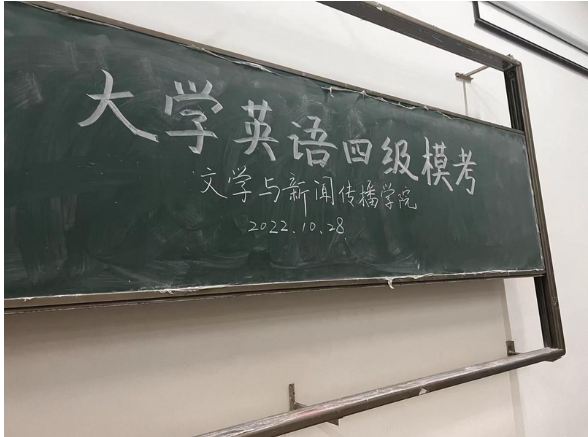 大学英语四级模考
文学与新闻传播学院
2022.10.28